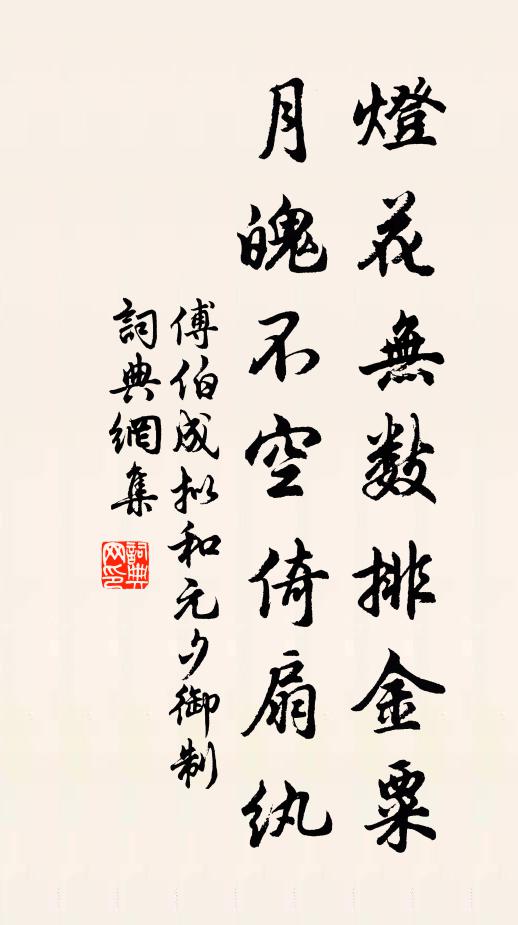 燈花無數排金粟
月魄不空倚扇紈
傅伯成拟和元夕御制
詞典網集
詞典
网印